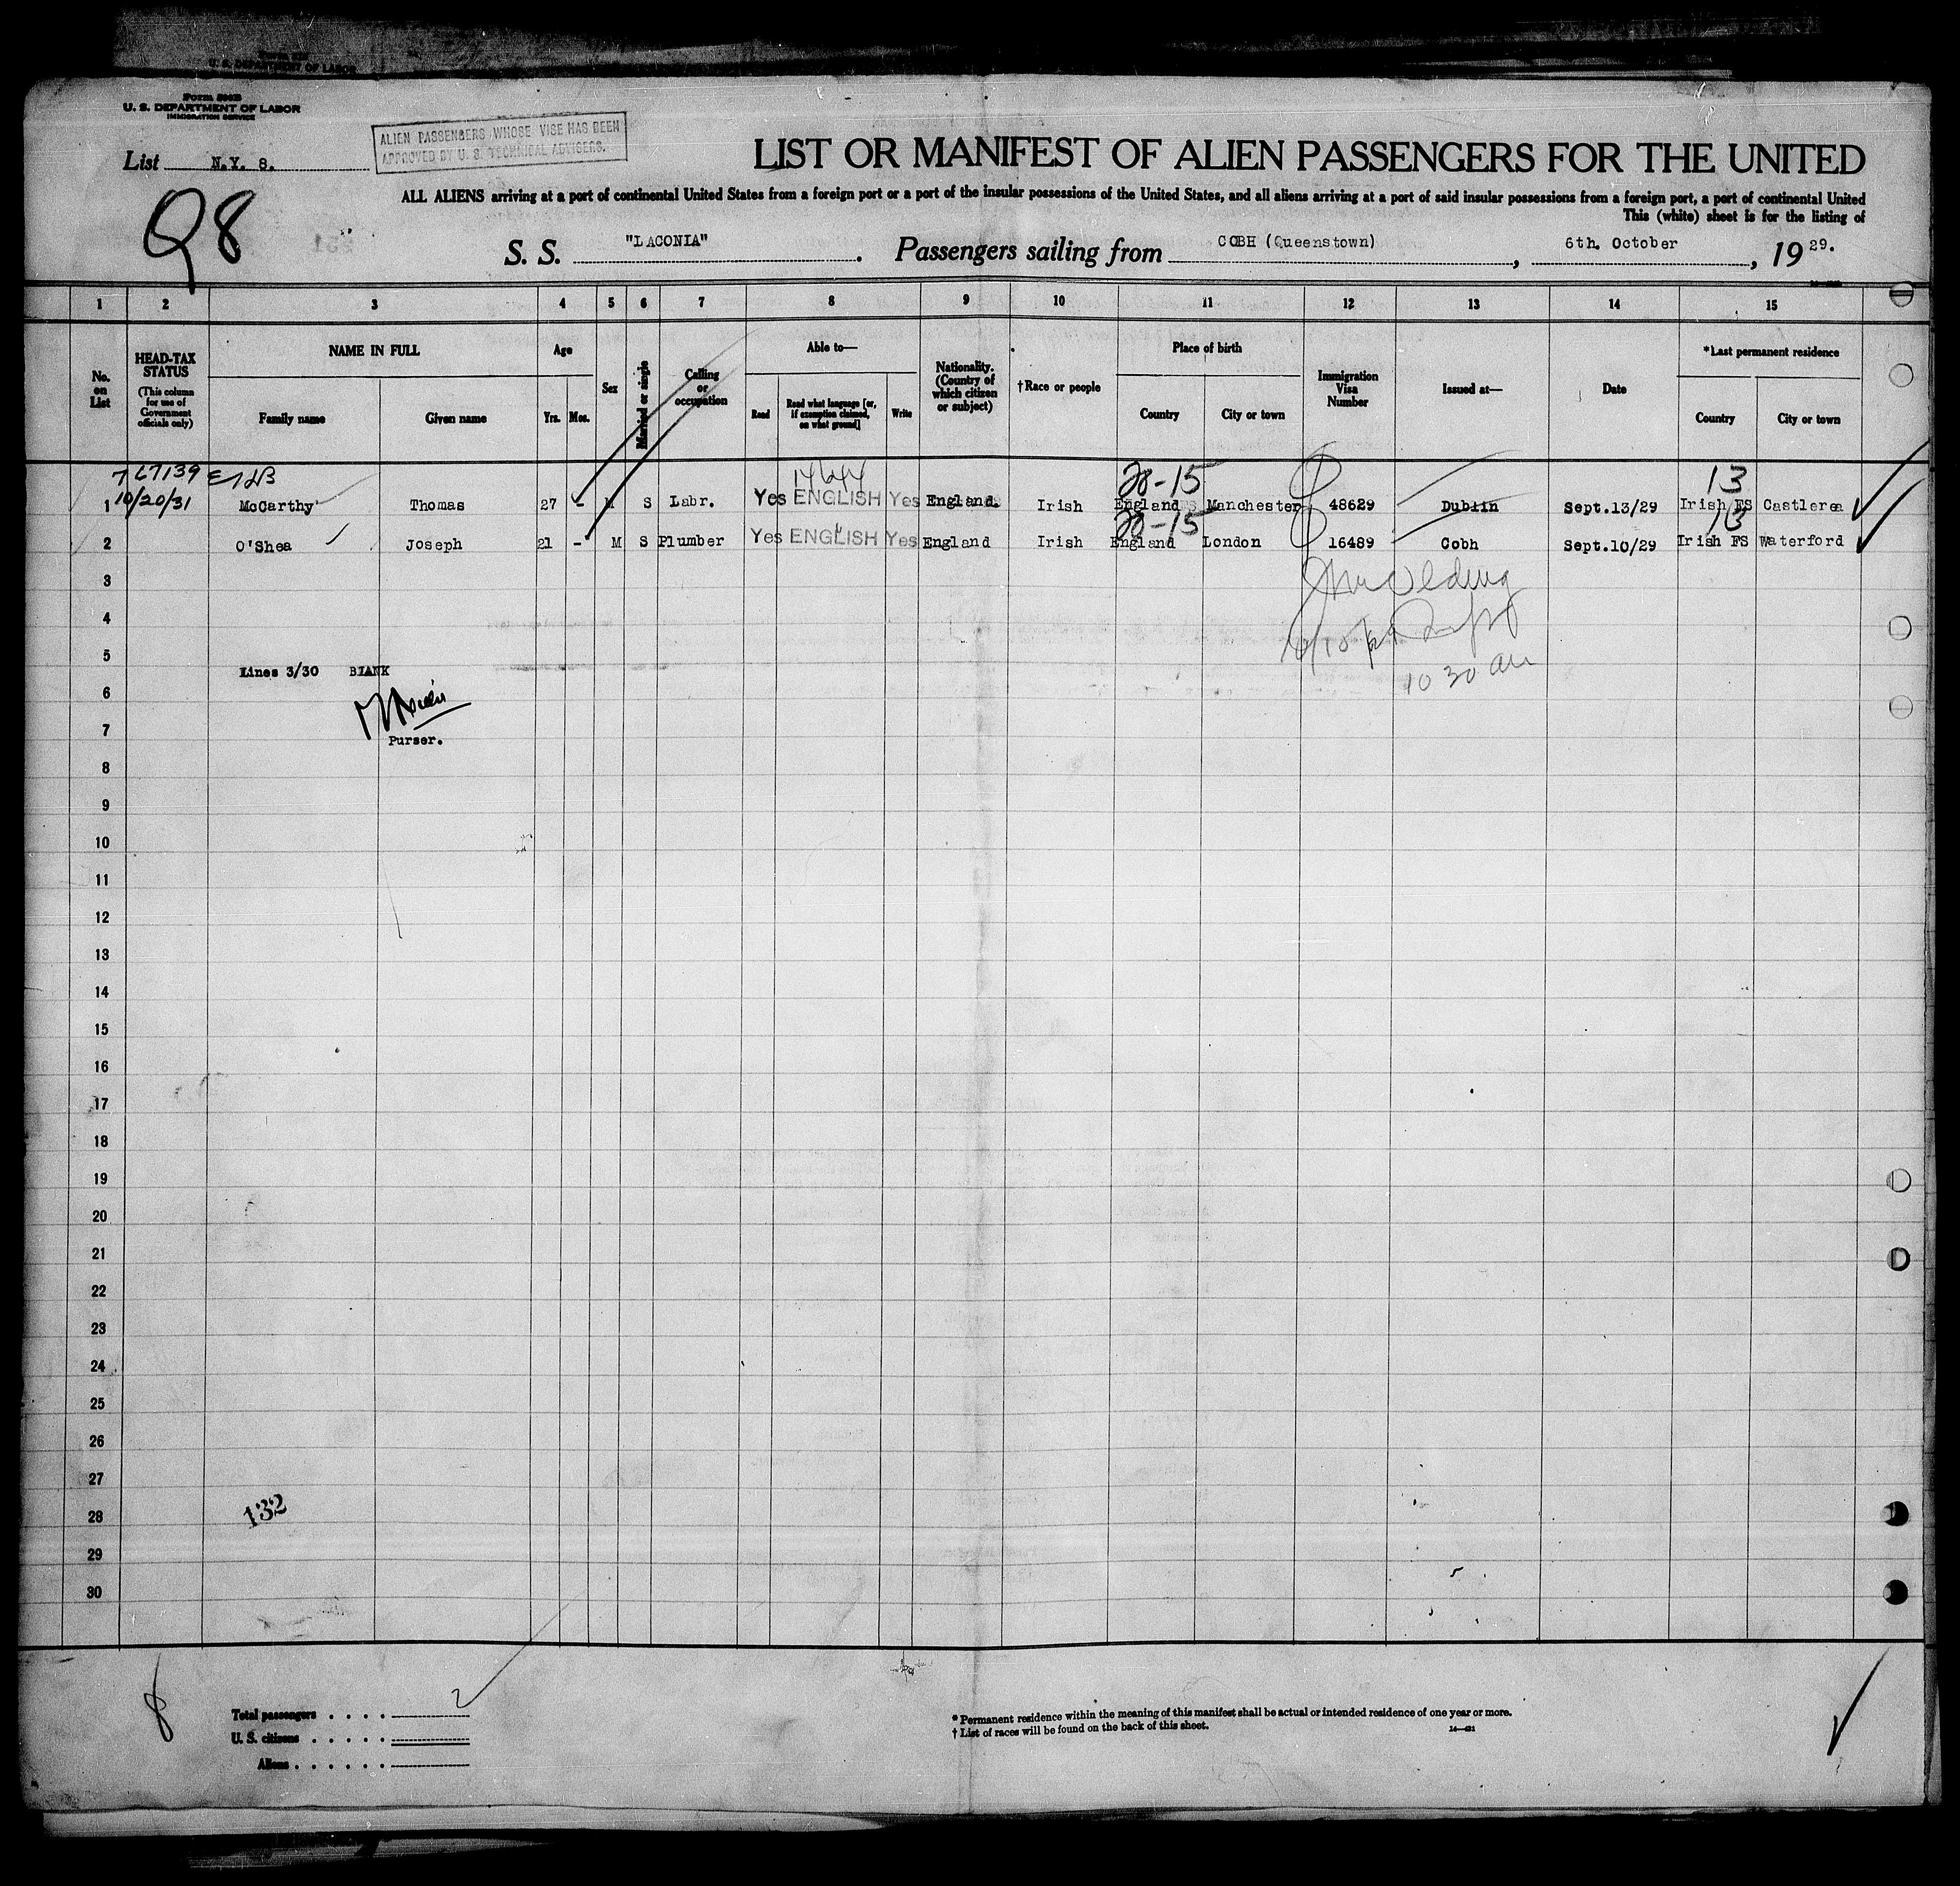 U. S. DEPARTMENT OF LABOR
Form 500B
U. S. DEPARTMENT OF LABOR
IMMIGRATION SERVICE
ALIEN PASSENGERS WHOSE VISE HAS BEEN
APPROVED BY U. S. TECHNICAL ADVISERS.
List N.Y. 8.
LIST OR MANIFEST OF ALIEN PASSENGERS FOR THE UNITED
ALL ALIENS arriving at a port of continental United States from a foreign port or a port of the insular possessions of the United States, and all aliens arriving at a port of said insular possessions from a foreign port, a port of continental United
This (white) sheet is for the listing of
98
S. S. "LACONIA". Passengers sailing from COBH (Queenstown), 6th. October, 19 29.
1 2 3 4 5 6 7 8 9 10 11 12 13 14 15
No. on List
HEAD-TAX STATUS (This column for use of Government officials only)
NAME IN FULL
Family name Given name
Age
Yrs. Mos.
Sex
Married or single
Calling or occupation
Able to—
Read Read what language [or, if exemption claimed, on what ground] Write
Nationality. (Country of which citizen or subject)
†Race or people
Place of birth
Country City or town
Immigration Visa Number
Issued at—
Date
*Last permanent residence
Country City or town
7 67139 14644 28-15 13
10/20/31
1 McCarthy Thomas 27 - M S Labr. Yes ENGLISH Yes England. Irish England Manchester 48629 Dublin Sept.13/29 Irish FS Castlerea
28-15 13
2 O'Shea Joseph 21 - M S Plumber Yes ENGLISH Yes England Irish England London 16489 Cobh Sept.10/29 Irish FS Waterford
3
4
5
Lines 3/30 BLANK
10 30 am
6
7
Purser.
8
9
10
11
12
13
14
15
16
17
18
19
20
21
22
23
24
25
26
27
28
132
29
30
8
Total passengers . . . . 2
U. S. citizens . . . . .
Aliens . . . . . .
* Permanent residence within the meaning of this manifest shall be actual or intended residence of one year or more.
† List of races will be found on the back of this sheet.